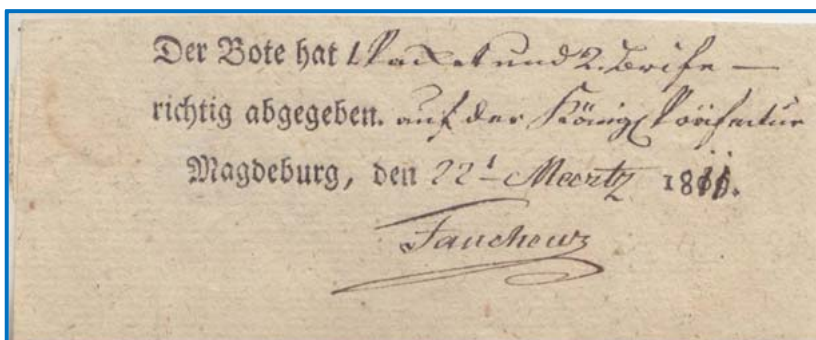 Der Bote hat 1 Packet und 2. Brife —
richtig abgegeben. auf der Königl Präfectur
Magdeburg, den 22t Meertz 1811.